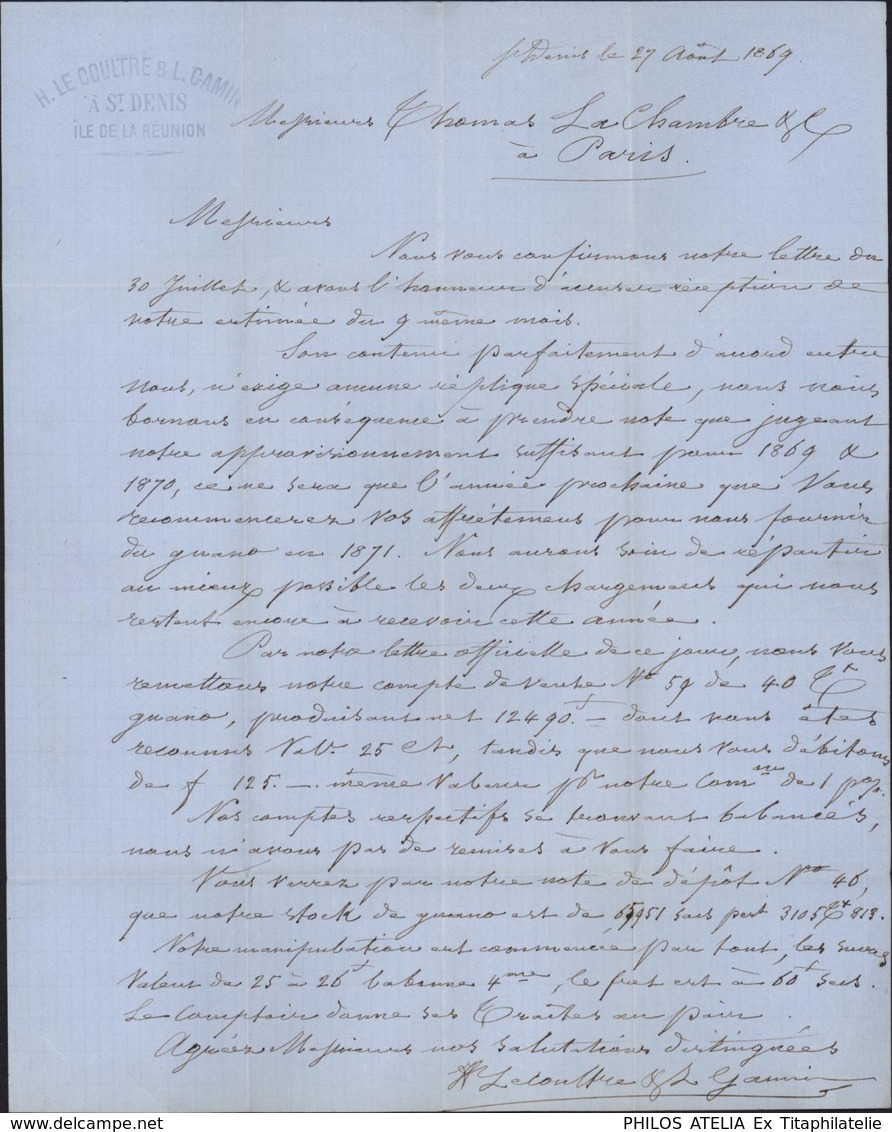 H. LE COULTRE & L. GAMIN
À ST DENIS
ÎLE DE LA RÉUNION
St Denis le 27 Août 1869.
Messieurs Thomas La Chambre & Ce
à Paris.
Messieurs
Nous vous confirmons notre lettre du
30 Juillet, & avons l'honneur d'accuser réception de
votre estimée du 9 même mois.
Son contenu parfaitement d'accord entre
nous, n'exige aucune réplique spéciale, nous nous
bornons en conséquence à prendre note que jugeant
notre approvisionnement suffisant pour 1869 &
1870, ce ne sera que l'année prochaine que Vous
recommencerez vos affrètemens pour nous fournir
du guano en 1871. Nous aurons soin de répartir
au mieux possible les deux chargemens qui nous
restent encore à recevoir cette année.
Par notre lettre officielle de ce jour, nous vous
remettons notre compte de vente No 59 de 40 Tx
guano, produisant net 12490.f — dont vous êtes
reconnus Val. 25 Ct, tandis que nous vous débitons
de f 125. — même valeur pr notre Comon de 1 p%.
Nos comptes respectifs se trouvant balancés,
nous n'avons pas de remises à Vous faire.
Vous verrez par notre note de dépôt No 46,
que notre stock de guano est de sacs pest 3105Tx 813.
Votre manipulation est commencée par tout, les sucres
valent de 25 à 26f la bonne 4me, le fret est à 60f secs.
Le Comptoir donne ses Traites au pair.
Agréez Messieurs nos salutations distinguées
H. Lecoultre & L. Gamin
PHILOS ATELIA Ex Titaphilatelie